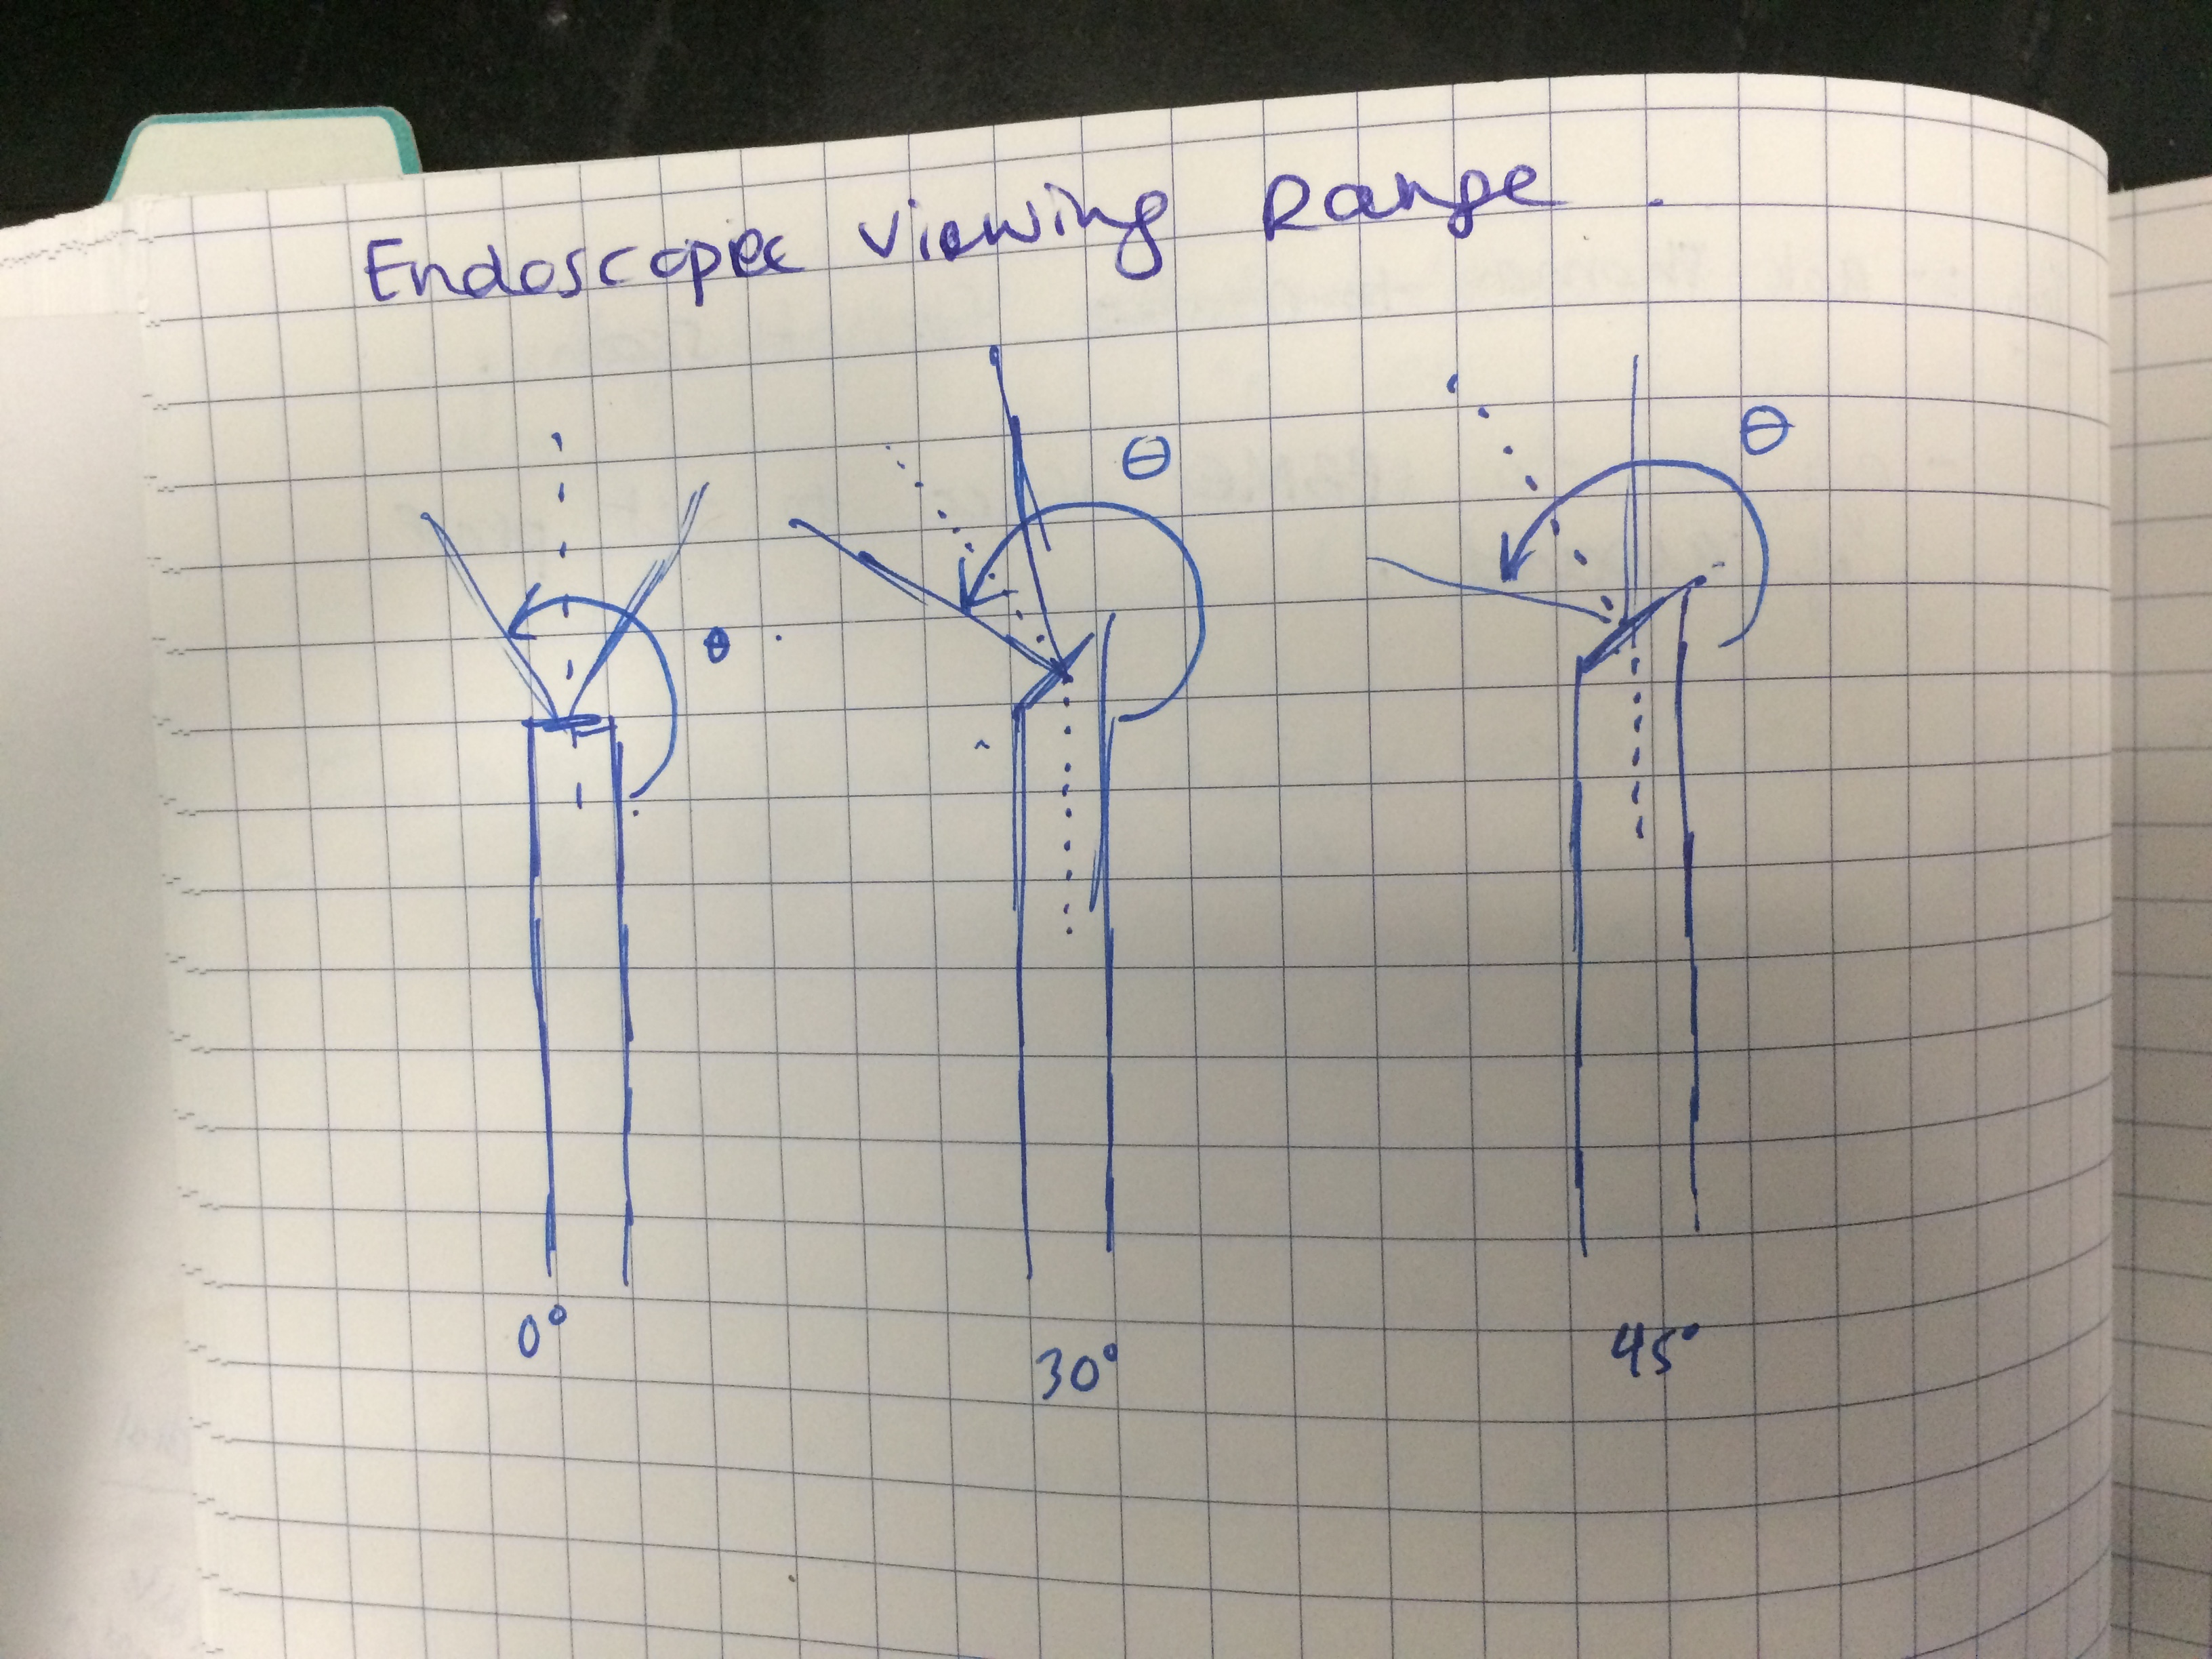 Endoscope viewing Range
θ
θ
θ
0°
30°
45°